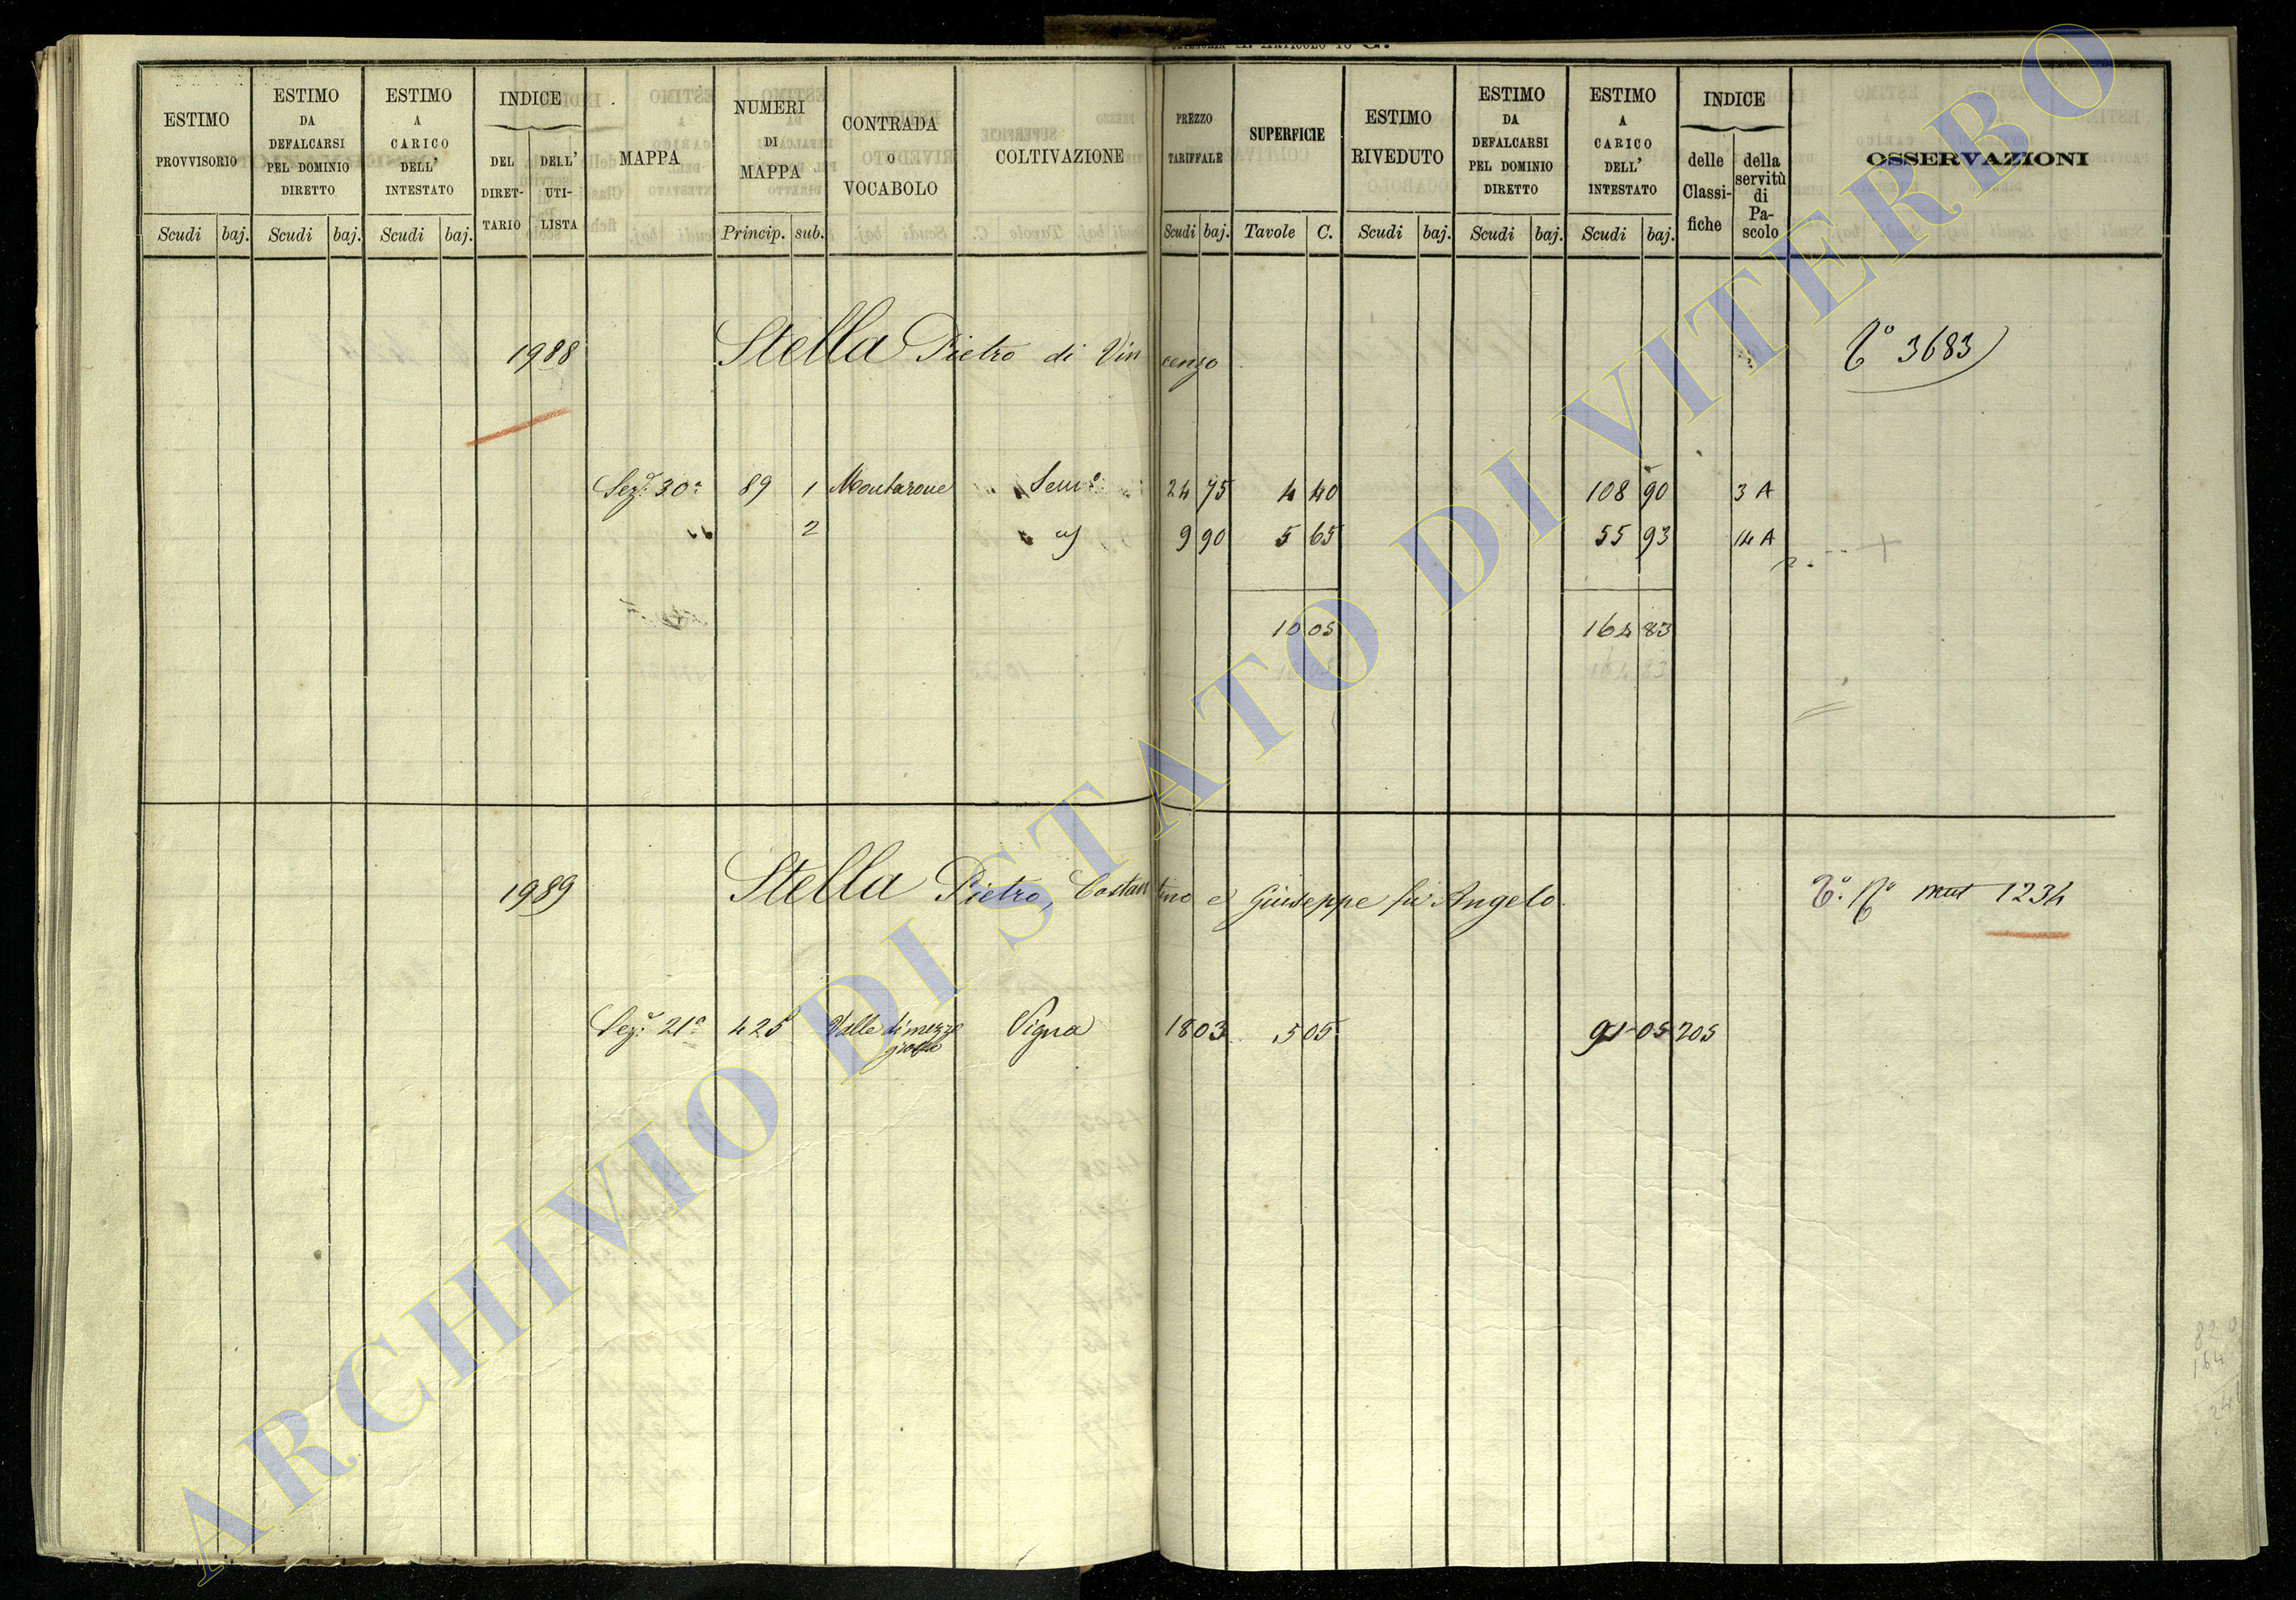 ESTIMO PROVVISORIO
Scudi baj.
ESTIMO DA DEFALCARSI PEL DOMINIO DIRETTO
Scudi baj.
ESTIMO A CARICO DELL' INTESTATO
Scudi baj.
INDICE
DEL DIRET-TARIO
DELL' UTI-LISTA
MAPPA
NUMERI DI MAPPA
Princip. sub.
CONTRADA O VOCABOLO
COLTIVAZIONE
PREZZO TARIFFALE
Scudi baj.
SUPERFICIE
Tavole C.
ESTIMO RIVEDUTO
Scudi baj.
ESTIMO DA DEFALCARSI PEL DOMINIO DIRETTO
Scudi baj.
ESTIMO A CARICO DELL' INTESTATO
Scudi baj.
INDICE
delle Classi-fiche
della servitù di Pa-scolo
OSSERVAZIONI
1988 Stella Pietro di Vincenzo 3683
Sez.e 30a 89 1 Montarone Sem.o 24 75 4 40 108 90 3 A
2 9 90 5 65 55 93 14 A
10 05 164 83
1989 Stella Pietro, Costantino e Giuseppe fu Angelo 1234
Sez.e 21a 425 Valle di mezzo giorno Vigna 18 03 5 05 91 05 205
820
164
ARCHIVIO DI STATO DI VITERBO